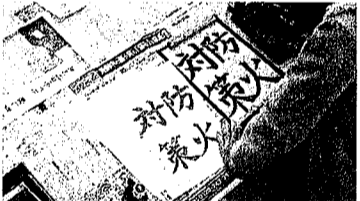 防火
対策
防火
対策